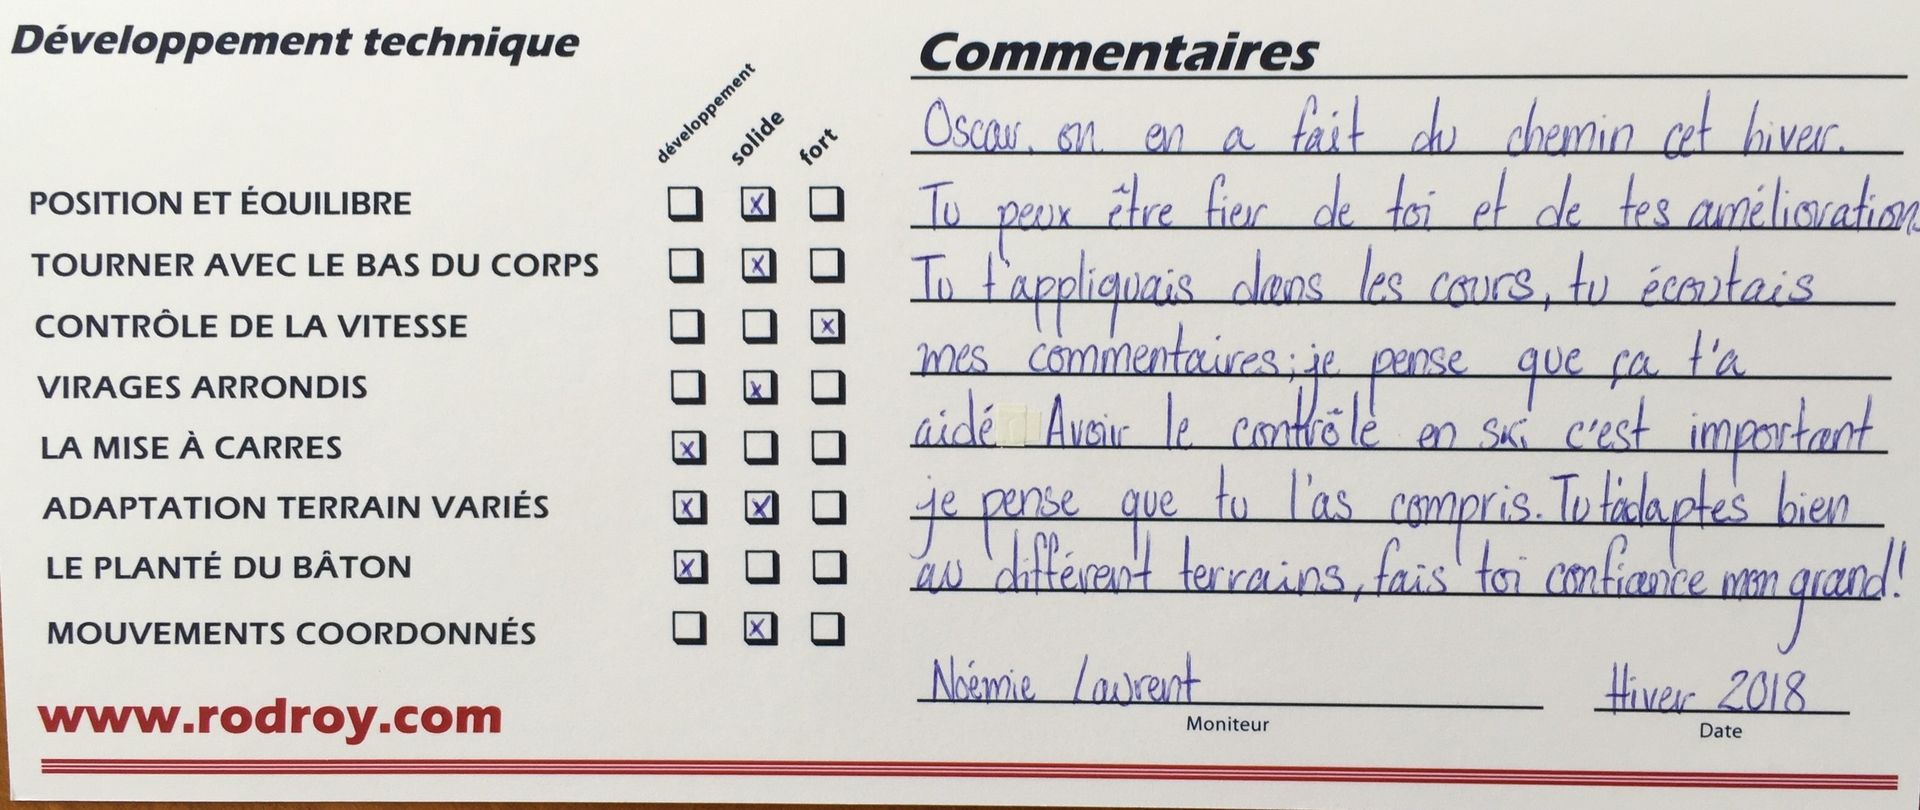 Développement technique
développement
solide
fort
POSITION ET ÉQUILIBRE
TOURNER AVEC LE BAS DU CORPS
CONTRÔLE DE LA VITESSE
VIRAGES ARRONDIS
LA MISE À CARRES
ADAPTATION TERRAIN VARIÉS
LE PLANTÉ DU BÂTON
MOUVEMENTS COORDONNÉS
www.rodroy.com
Commentaires
Oscar, on en a fait du chemin cet hiver.
Tu peux être fier de toi et de tes améliorations
Tu t'appliquais dans les cours, tu écoutais
mes commentaires; je pense que ça t'a
aidé Avoir le contrôle en ski c'est important
je pense que tu l'as compris. Tu t'adaptes bien
au différent terrains, fais toi confiance mon grand!
Noémie Laurent
Hiver 2018
Moniteur
Date